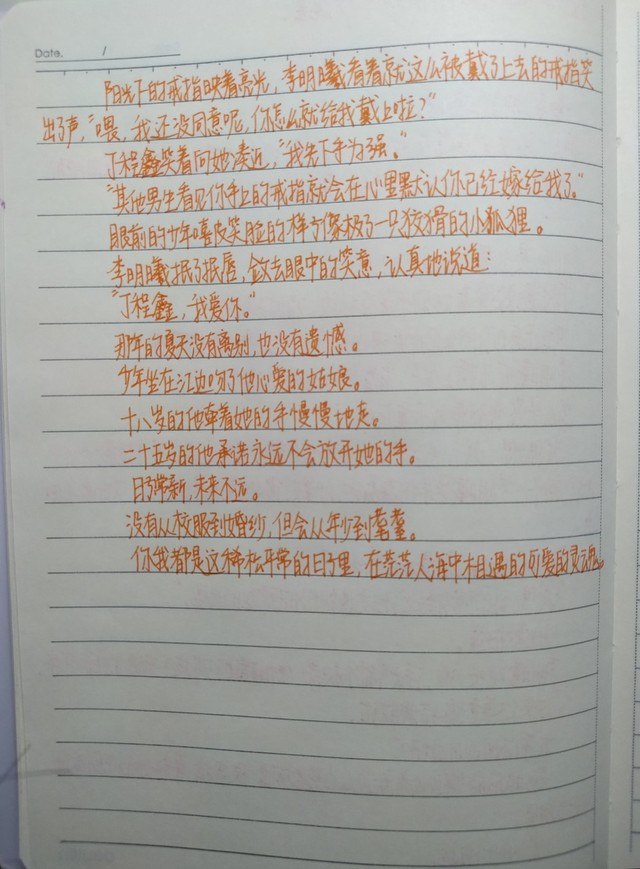 Date. 1
阳光下的戒指映着亮光，李明曦看着就这么被戴了上去的戒指笑
出了声，“喂，我还没同意呢，你怎么就给我戴上啦？”
丁程鑫笑着向她凑近，“我先下手为强。”
“其他男生看见你手上的戒指就会在心里默认你已经嫁给我了。”
眼前的少年嘻皮笑脸的样子像极了一只狡猾的小狐狸。
李明曦抿了抿唇，敛去眼中的笑意，认真地说道：
“丁程鑫，我爱你。”
那年的夏天没有离别，也没有遗憾。
少年坐在江边吻了他心爱的姑娘。
十八岁的他牵着她的手慢慢地走。
二十五岁的他承诺永远不会放开她的手。
日子常新，未来不远。
没有从校服到婚纱，但会从年少到耄耋。
你我都是这种松平常的日子里，在茫茫人海中相遇的可爱的灵魂。